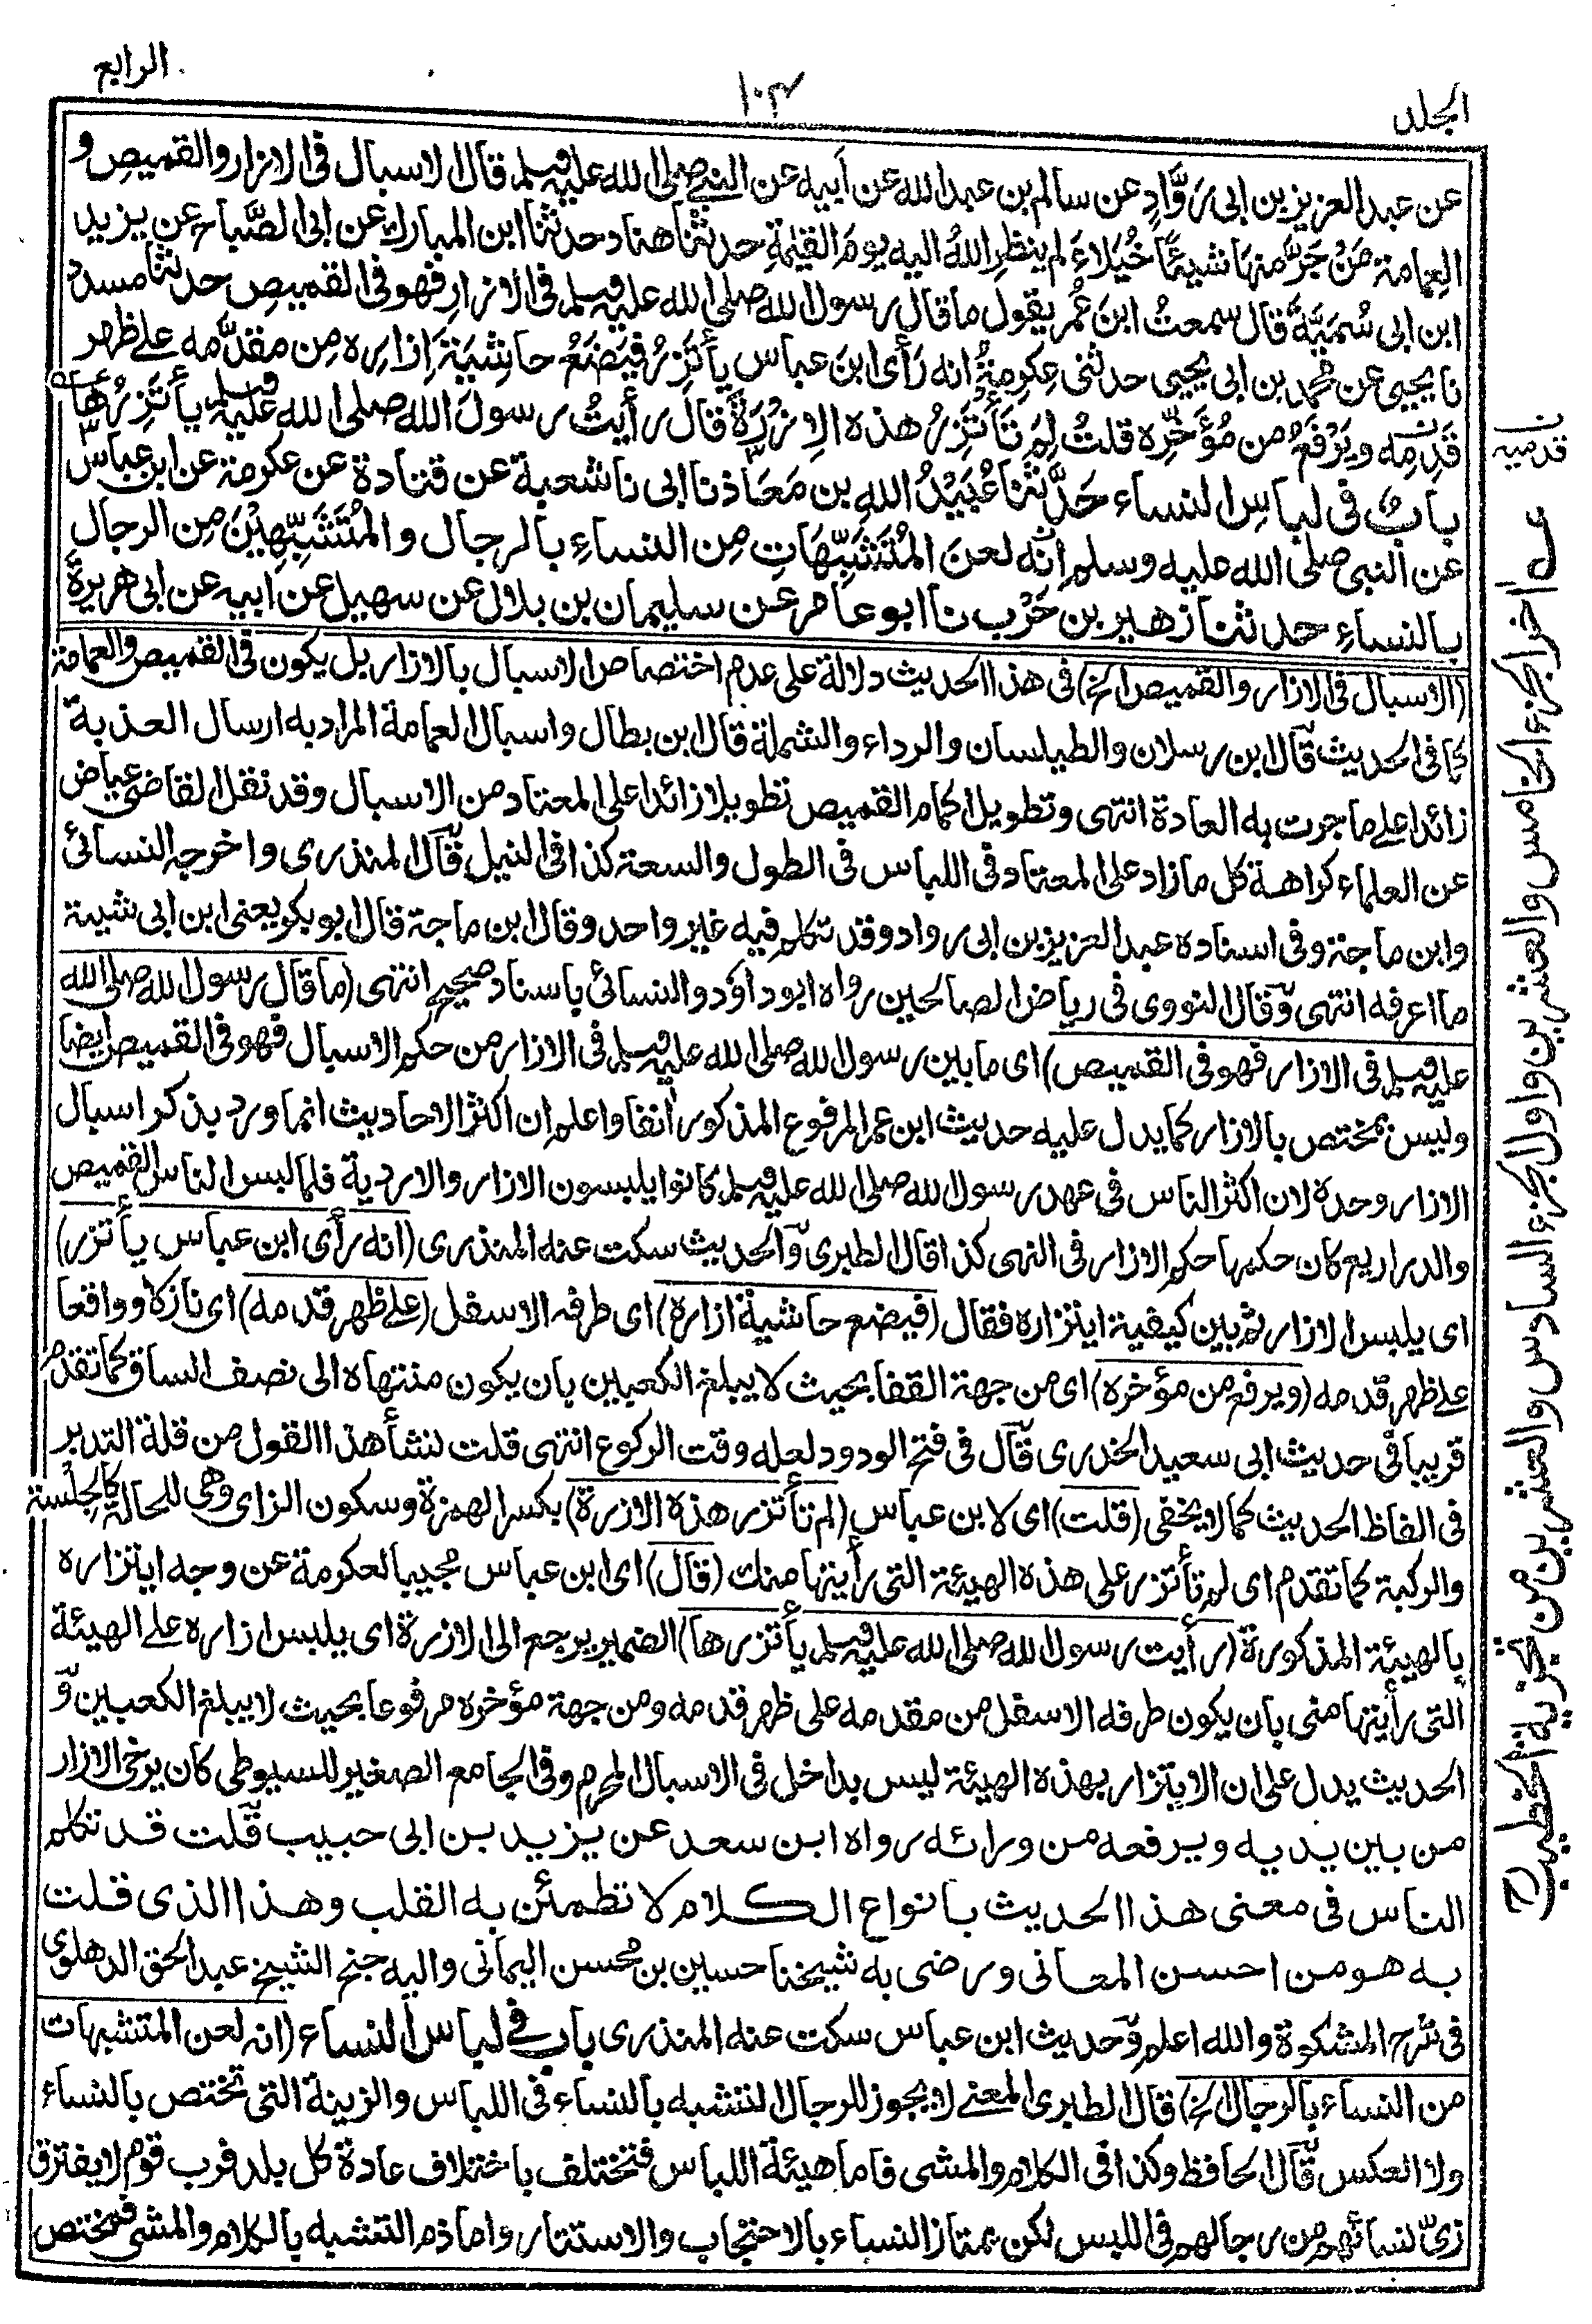 المجلد
١٠٣
الرابع
عن عبد العزيز بن ابى رَوَّادٍ عن سالم بن عبد الله عن اَبيه عن النبى صلى الله عليه وسلم قال الاسبال فى الازار والقميصِ و
العِمامة مَنْ جَرَّ منها شيئًا خُيَلاءَ لم ينظرِ اللهُ اليه يومَ القيٰمةِ حدثنا هناد حدثنا ابن المبارك عن ابى الصَّباح عن يزيد
ابن ابى سُمَيَّةَ قال سمعتُ ابنَ عُمر يقول ما قال رسول الله صلى الله عليه وسلم فى الازارِ فهو فى القميصِ حدثنا مسدد
نا يحيى عن محمد بن ابى يحيى حدثنى عِكرمةُ انه رَأى ابنَ عباس يأتَزِرُ فيَضَعُ حاشِيَةَ اِذارِه مِن مقدَّمه على ظهر
قَدمِه ويَرْفَعُ من مُؤَخَّرِه قلتُ لِمَ تَأْتَزِرُ هذه الاِزْرَةَ قال رأيتُ رسولَ الله صلى الله عليه وسلم يأتَزِرُها
بابٌ فى لباسِ النساء حَدَّثَنا عُبَيْدُ اللهِ بن مَعَاذ نا ابى نا شعبة عن قتادة عن عكرمة عن ابن عباس
عن النبى صلى الله عليه وسلم انَّه لعنَ المُتَشَبِّهَاتِ مِن النساءِ بالرجال والمُتَشَبِّهِيْنَ مِن الرجال
بالنساءِ حدثنا زهير بن حَرْب نا ابو عامر عن سليمان بن بلال عن سهيل عن ابيه عن ابى هريرة
(الاسبال فى الازار والقميص الخ) فى هذا الحديث دلالة على عدم اختصاص الاسبال بالازار بل يكون فى القميص والعمامة
كما فى الحديث قال ابن رسلان والطيلسان والرداء والشملة قال ابن بطال واسبال العمامة المراد به ارسال العذبة
زائدا على ما جرت به العادة انتهى وتطويل اكمام القميص تطويلا زائدا على المعتاد من الاسبال وقد نقل القاضى عياض
عن العلماء كراهة كل ما زاد على المعتاد فى اللباس فى الطول والسعة كذا فى النيل قال المنذرى واخرجه النسائى
وابن ماجة وفى اسناده عبد العزيز بن ابى رواد وقد تكلم فيه غير واحد وقال ابن ماجة قال ابو بكر يعنى ابن ابى شيبة
ما اعرفه انتهى وقال النووى فى رياض الصالحين رواه ابو داؤد والنسائى باسناد صحيح انتهى (ما قال رسول الله صلى الله
عليه وسلم فى الازار فهو فى القميص) اى ما بين رسول الله صلى الله عليه وسلم فى الازار من حكم الاسبال فهو فى القميص ايضا
وليس بمختص بالازار كما يدل عليه حديث ابن عمر المرفوع المذكور انفا واعلم ان اكثر الاحاديث انما ورد بذكر اسبال
الازار وحده لان اكثر الناس فى عهد رسول الله صلى الله عليه وسلم كانوا يلبسون الازار والاردية فلما لبس الناس القميص
والدراريع كان حكمها حكم الازار فى النهى كذا قال الطبرى والحديث سكت عنه المنذرى (انه رأى ابن عباس يأتزر)
اى يلبس الازار ثم بين كيفية ايتزاره فقال (فيضع حاشية ازاره) اى طرفه الاسفل (على ظهر قدمه) اى نازلا وواقعا
على ظهر قدمه (ويرفع من مؤخره) اى من جهة القفا بحيث لا يبلغ الكعبين بان يكون منتهاه الى نصف الساق كما تقدم
قريبا فى حديث ابى سعيد الخدرى قال فى فتح الودود لعله وقت الركوع انتهى قلت لنشأ هذا القول من قلة التدبر
فى الفاظ الحديث كما لا يخفى (قلت) اى لابن عباس (لم تأتزر هذه الازرة) بكسر الهمزة وسكون الزاى وهى للحالة كالجِلْسة
والركبة كما تقدم اى لم تأتزر على هذه الهيئة التى رأيتها منك (قال) اى ابن عباس مجيبا لعكرمة عن وجه ايتزاره
بالهيئة المذكورة (رأيت رسول الله صلى الله عليه وسلم يأتزرها) الضمير يرجع الى الازرة اى يلبس ازاره على الهيئة
التى رأيتها منى بان يكون طرفه الاسفل من مقدمه على ظهر قدمه ومن جهة مؤخره مرفوعا بحيث لا يبلغ الكعبين و
الحديث يدل على ان الايتزار بهذه الهيئة ليس بداخل فى الاسبال المحرم وفى الجامع الصغير للسيوطى كان يرخى الازار
من بين يديه ويرفعه من ورائه رواه ابن سعد عن يزيد بن ابى حبيب قلت قد تكلم
الناس فى معنى هذا الحديث بانواع الكلام لا تطمئن به القلب وهذا الذى قلت
به هو من احسن المعانى ورضى به شيخنا حسين بن محسن اليمانى واليه جنح الشيخ عبد الحق الدهلوى
فى شرح المشكوة والله اعلم وحديث ابن عباس سكت عنه المنذرى باب فى لباس النساء (انه لعن المتشبهات
من النساء بالرجال الخ) قال الطبرى المعنى لا يجوز للرجال التشبه بالنساء فى اللباس والزينة التى تختص بالنساء
ولا العكس قال الحافظ وكذا فى الكلام والمشى فاما هيئة اللباس فتختلف باختلاف عادة كل بلد فرب قوم لا يفترق
زىّ نسائهم من رجالهم فى اللبس لكن يمتاز النساء بالاحتجاب والاستتار واما ذم التشبه بالكلام والمشى فمختص
قدميه
اخر الجزء الخامس والعشرين واول الجزء السادس والعشرين من تجزية الخطيب